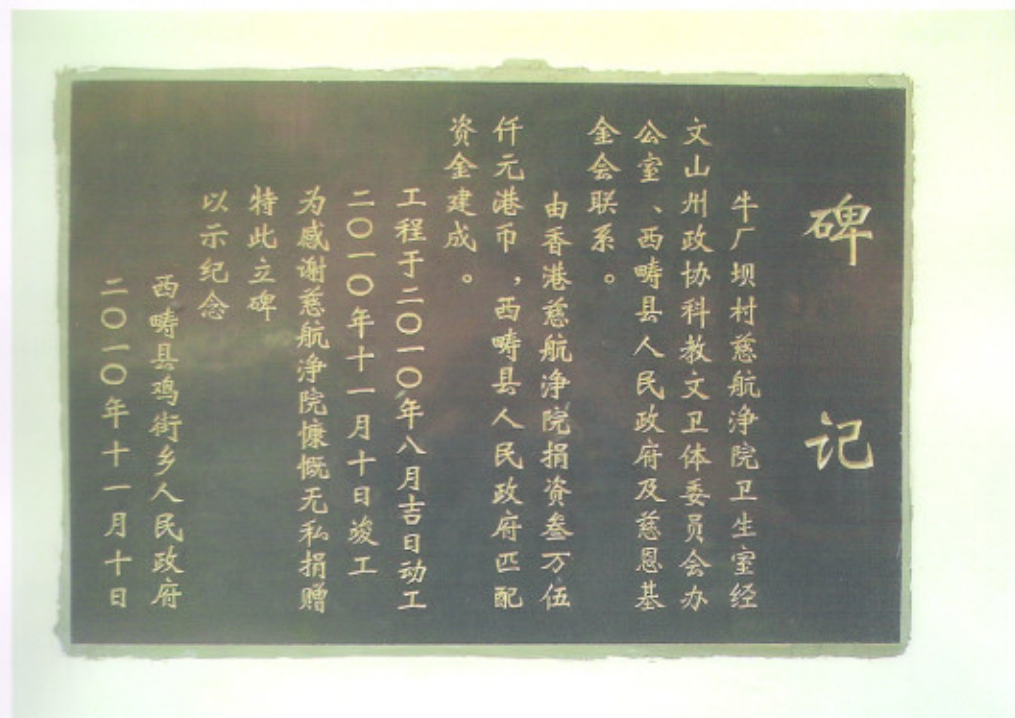 碑记
牛厂坝村慈航净院卫生室经
文山州政协科教文卫体委员会办
公室、西畴县人民政府及慈恩基
金会联系。
由香港慈航净院捐资叁万伍
仟元港币，西畴县人民政府匹配
资金建成。
工程于二〇一〇年八月吉日动工
二〇一〇年十一月十日竣工
为感谢慈航净院慷慨无私捐赠
特此立碑
以示纪念
西畴县鸡街乡人民政府
二〇一〇年十一月十日